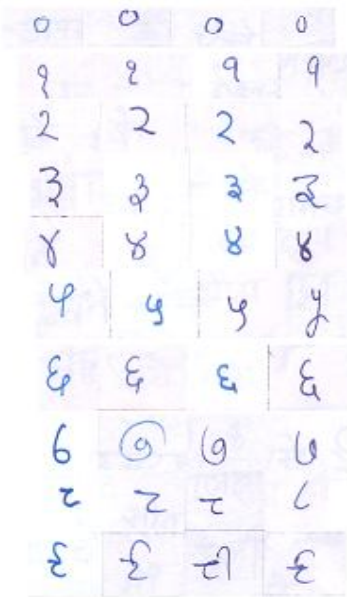 ० ० ० ०
१ १ १ १
२ २ २ २
३ ३ ३ ३
४ ४ ४ ४
५ ५ ५ ५
६ ६ ६ ६
७ ७ ७ ७
८ ८ ८ ८
९ ९ ९ ९